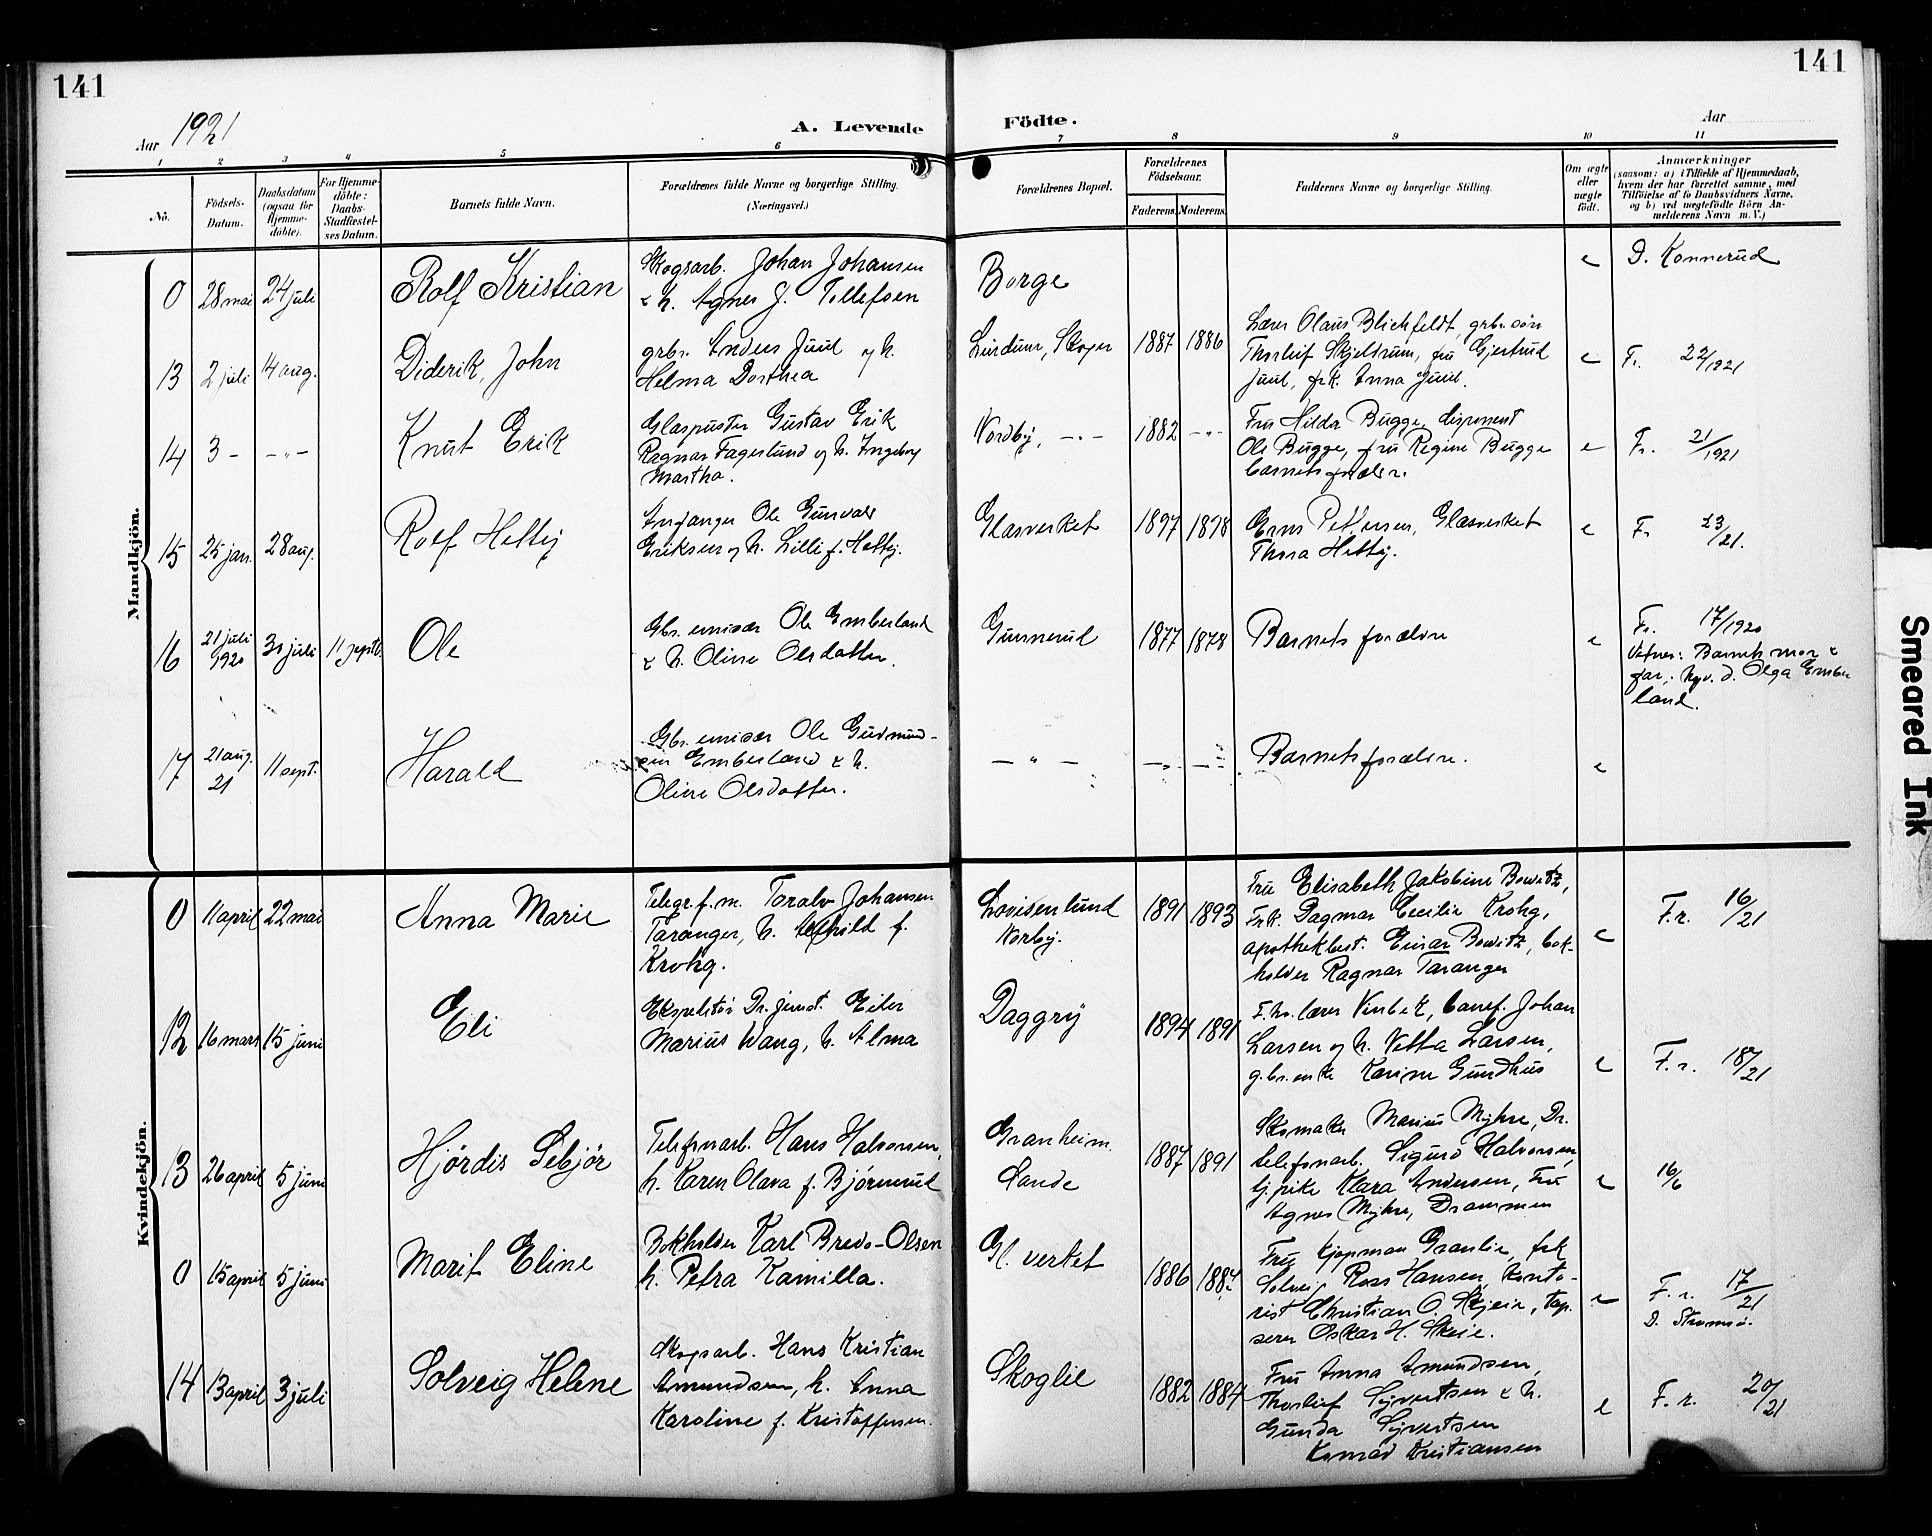 141
141
Aar 1921
A. Levende Födte.
Aar
1 2 3 4 5 6 7 8 9 10 11
Nö.
Födsels-Datum.
Daabsdatum (ogsaa for Hjemme-döbte).
For Hjemme-döbte: Daabs-Stadfæstel-ses Datum.
Barnets fulde Navn.
Forældrenes fulde Navne og borgerlige Stilling. (Næringsvei.)
Forældrenes Bopæl.
Forældrenes Födselsaar.
Faderens. Moderens.
Faddernes Navne og borgerlige Stilling.
Om ægte eller uægte født.
Anmærkninger
(saasom: a) i Tilfælde af Hjemmedaab, hvem der har forrettet samme, med Tilföielse af to Daabsvidners Navne, og b) ved uægtefödte Börn An-melderens Navn m. V.)
Mandkjön.
0 28 mai 24 juli
Rolf Kristian
Skogsarb. Johan Johansen
& h. Agnes J. Tollefsen
Borge
e
D. Konnerud
13 2 juli 14 aug.
Diderik, John
grbr. Anders Juul og h.
Helma Dorthea
Lindum, Skoger
1887 1886
Lærer Olaus Blichfeldt, grbr. søn
Thorleif Skjeldrum, fru Gjertrud
Juul, frk. Anna Juul.
e
Fr. 22/1921
14 3 - - " -
Knut Erik
Glaspuster Gustav Erik
Ragnar Fagerlund og h. Ingeborg
Martha.
Nordby, - " -
1882 - " -
Fru Hilda Bugge, disponent
Ole Bugge, fru Regine Bugge
barnets forældre.
e
Fr. 21/1921
15 25 jan. 28 aug.
Rolf Helby
Ole Gunvald
Eriksen og h. Lilli f. Helby.
Glasverket
1897 1898
Pettersen, Glasverket
Thora Helby.
e
Fr. 23/21.
16 21 juli 1920 31 juli 11 septb.
Ole
Gbr. emisær Ole Emberland
& h. Oline Olsdatter.
Gunnerud
1877 1878
Barnets forældre
e
Fr. 17/1920
Vitner: Barnets mor &
far; Ngv. d. Olga Ember
land.
17 21 aug. 21 11 sept.
Harald
Gbr. emisær Ole Gudmund-
sen Emberland & h.
Oline Olsdatter.
- " -
- " - - " -
Barnets forældre.
e
Kvindekjön.
0 11 april 22 mai
Anna Marie
Telegr.f.m. Toralv Johansen
Taranger, h. f.
Krohg.
Lovisenlund
Norby.
1891 1893
Fru Elisabeth Jakobine Bowitz,
Frk. Dagmar Cecilie Krohg,
apothekbest. Einar Bowitz, bok-
holder Ragnar Taranger
e
F.r. 16/21
12 16 mars 15 juni
Eli
Ekspeditør Dr. Eiler
Marius Wang, h. Alma
Daggry
1894 1891
lærer Vinbek, banef. Johan
Larsen og h. Vetta Larsen,
g.br. enke Karine Gundhus
e
F.r. 18/21
13 26 april 5 juni
Hjørdis Sebjør
Telefonarb. Hans Halvorsen,
h. Karen Olava f. Bjørnerud
Granheim
Sande
1887 1891
Skomaker Marius Myhre, Dr.
telefonarb. Sigurd Halvorsen,
tj.pike Klara Andersen, Fru
Agnes Myhre, Drammen
e
16/6
0 15 april 5 juni
Marit Eline
Bokholder Karl Bredo-Olsen
h. Petra Kamilla.
Gl. verket
1886 1887
Fru kjøpman Granlie, frk
Solveig Roas Hansen, konto-
rist Christian O. Skjeie, tap-
serer Oskar H. Skeie.
e
F.r. 17/21
D. Strømsø.
14 13 april 3 juli
Solveig Helene
Skogsarb. Hans Kristian
Amundsen, h. Anna
Karoline f. Kristoffersen.
Skoglie
1882 1884
Fru Anna Amundsen,
Thorleif Syvertsen & h.
Gunda Syvertsen
Konrad Kristiansen
e
F.r. 20/21
Smeared Ink